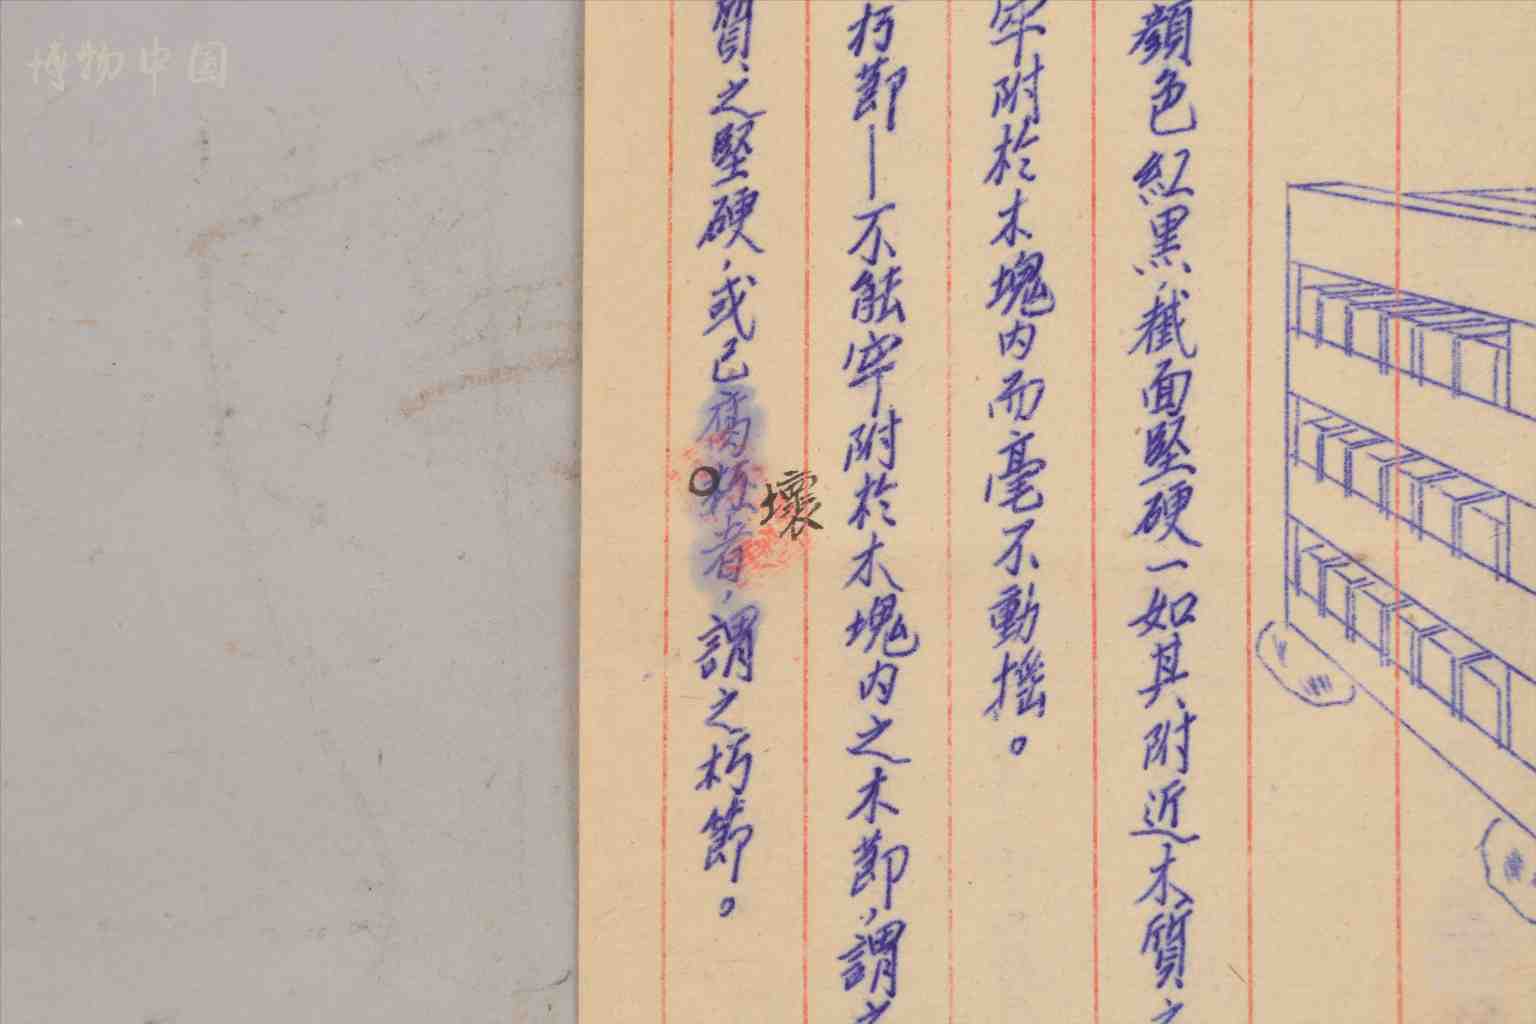 顏色紅黑，截面堅硬一如其附近木質之
牢附於木塊内而毫不動搖。
朽節—不能牢附於木塊内之木節，謂之
質之堅硬，或已腐朽者，謂之朽節。
壞
博物中国